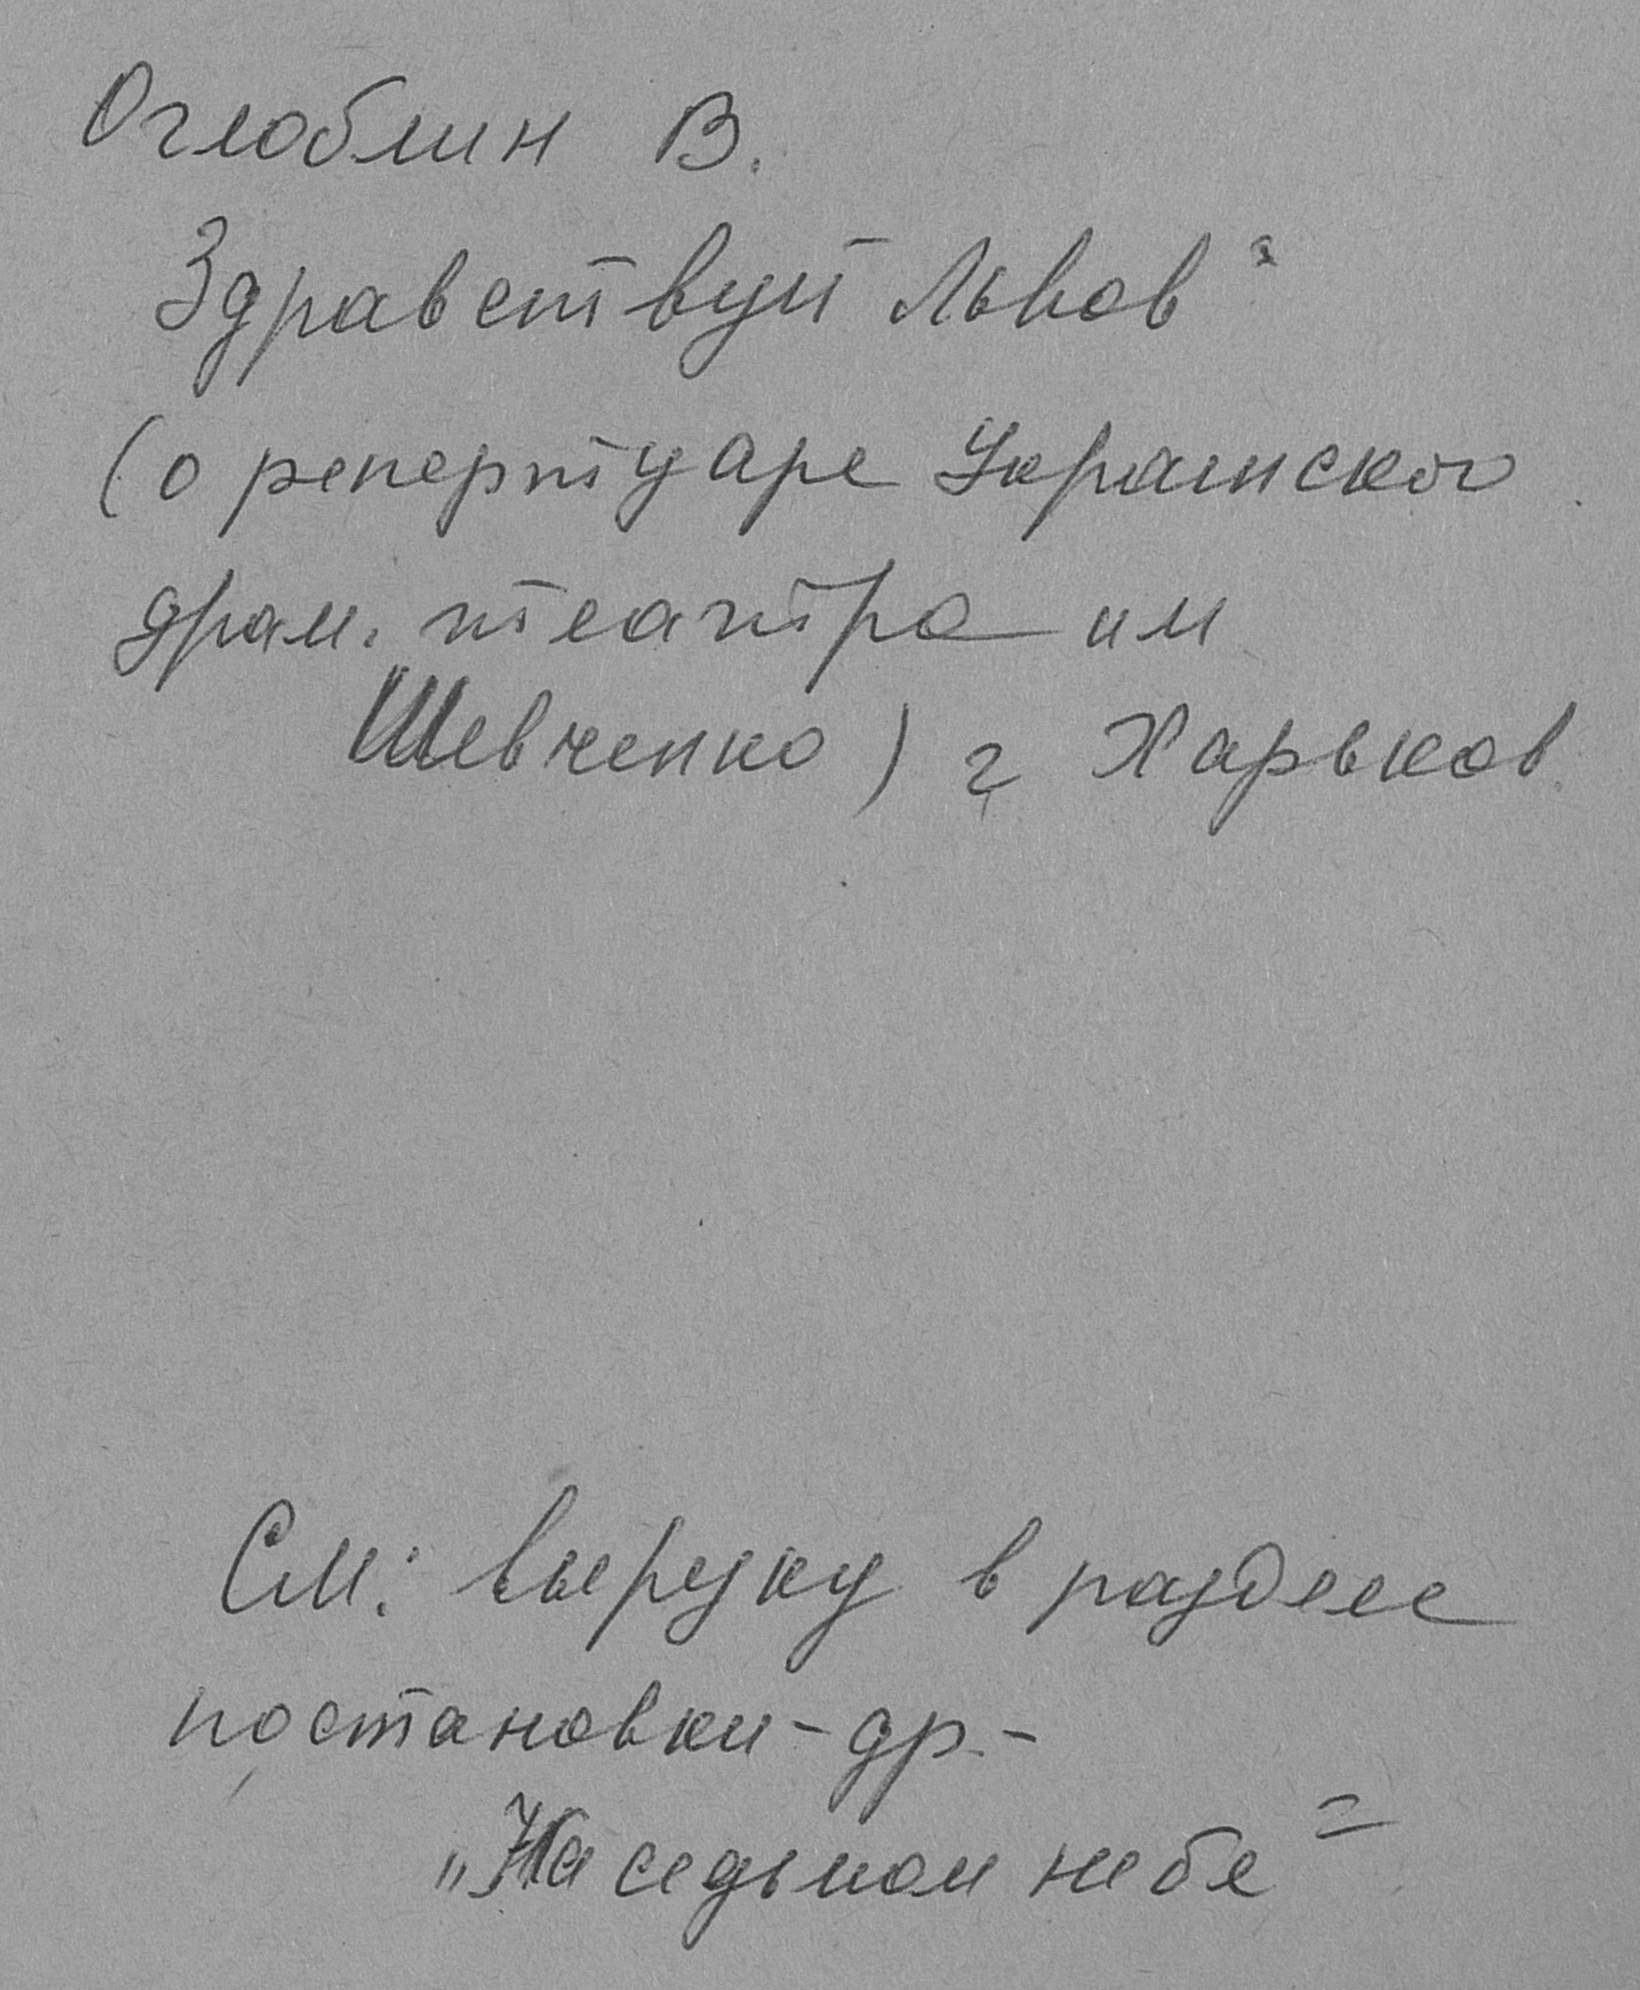 Оглоблин В.
Здравствуй Львов"
(о репертуаре Украинског
драм. театра им
Шевченко) г Харьков.
См: вырезку в разделе
постановки - др. -
„На седьмом небе"